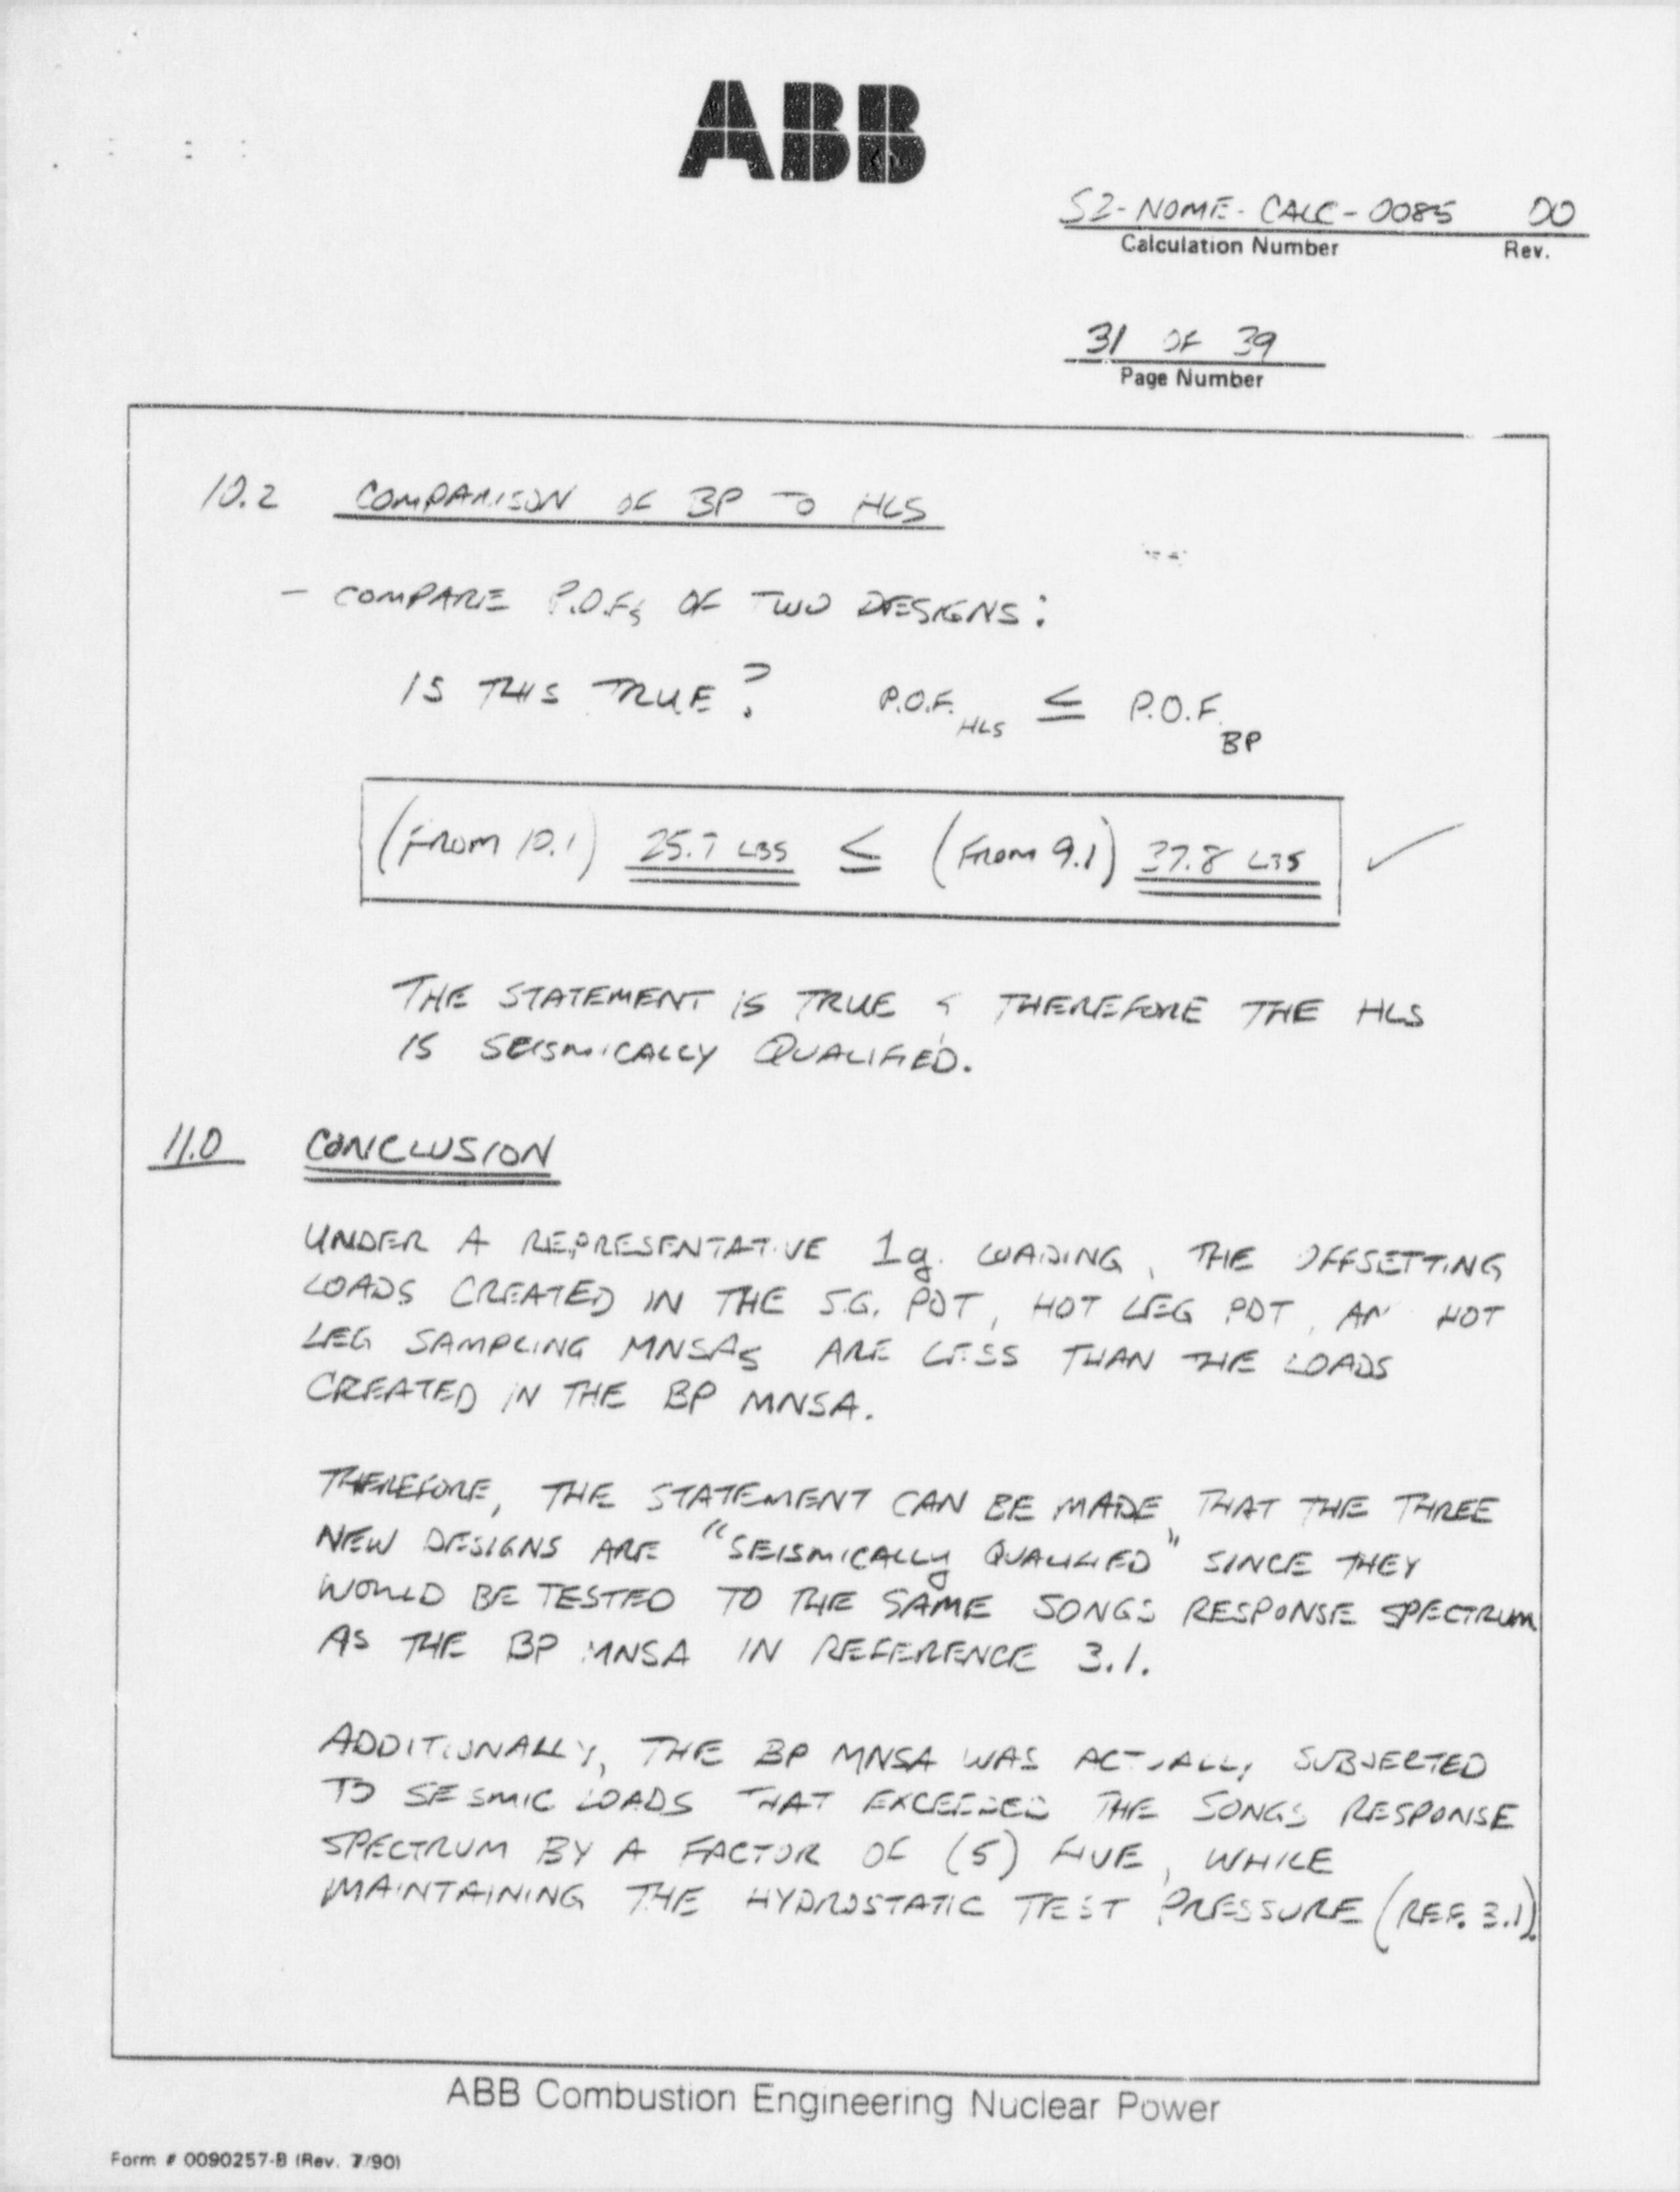 ABB
S2-NOME-CALC-0085 00
Calculation Number Rev.
31 OF 39
Page Number
10.2 COMPARISON OF BP TO HLS
- COMPARE P.O.F.s OF TWO DESIGNS:
IS THIS TRUE? P.O.F. HLS ≤ P.O.F. BP
(FROM 10.1) 25.7 LBS ≤ (FROM 9.1) 37.8 LBS ✓
THE STATEMENT IS TRUE & THEREFORE THE HLS
IS SEISMICALLY QUALIFIED.
11.0 CONCLUSION
UNDER A REPRESENTATIVE 1g. LOADING, THE OFFSETTING
LOADS CREATED IN THE S.G. PDT, HOT LEG PDT, AN HOT
LEG SAMPLING MNSAs ARE LESS THAN THE LOADS
CREATED IN THE BP MNSA.
THEREFORE, THE STATEMENT CAN BE MADE THAT THE THREE
NEW DESIGNS ARE "SEISMICALLY QUALIFIED" SINCE THEY
WOULD BE TESTED TO THE SAME SONGS RESPONSE SPECTRUM
AS THE BP MNSA IN REFERENCE 3.1.
ADDITIONALLY, THE BP MNSA WAS ACTUALLY SUBJECTED
TO SEISMIC LOADS THAT EXCEEDED THE SONGS RESPONSE
SPECTRUM BY A FACTOR OF (5) FIVE, WHILE
MAINTAINING THE HYDROSTATIC TEST PRESSURE (REF. 3.1).
ABB Combustion Engineering Nuclear Power
Form # 0090257-B (Rev. 7/90)